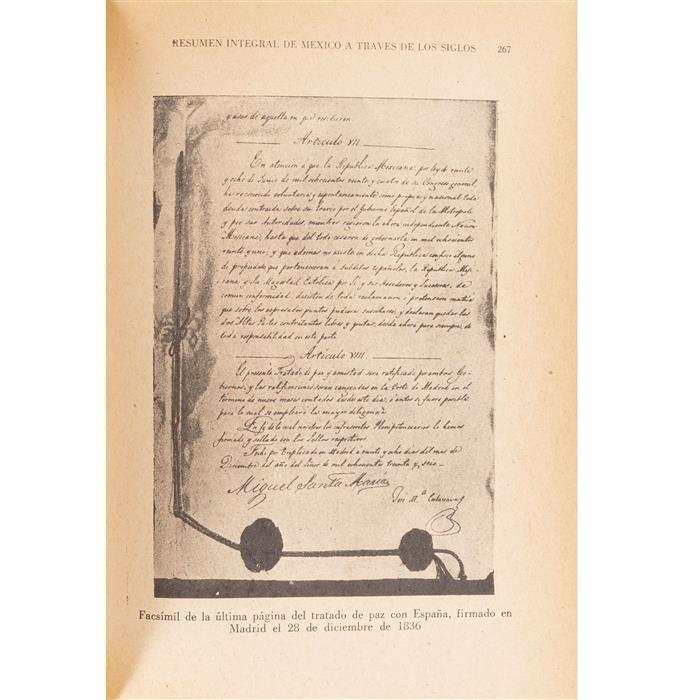 RESUMEN INTEGRAL DE MEXICO A TRAVES DE LOS SIGLOS 267
y usos de aquella en que residieren.
Articulo VII
En atencion a que la República Mexicana, por ley de veinte
y ocho de Junio de mil ochocientos veinte y cuatro de su Congreso general,
ha reconocido voluntaria y espontaneamente como propia y nacional toda
deuda contraida sobre su Erario por el Gobierno Español de la Metropoli
y por sus Autoridades, mientras rigieron la ahora independiente Nacion
Mexicana, hasta que del todo cesaron de gobernarla en mil ochocientos
veinte y uno; y que ademas no existe en dicha Republica confisco alguno
de propiedades que pertenecieran á subditos españoles, la Republica Mexi-
cana y Su Magestad Catolica por sí, y sus herederos y sucesores, de
comun conformidad desisten de toda reclamacion ó pretension mutua
que sobre los expresados puntos pudiera suscitarse, y declaran quedar las
dos Altas Partes contratantes libres y quitas, desde ahora para siempre, de
toda responsabilidad en esta parte.
Articulo VIII
El presente Tratado de paz y amistad será ratificado por ambos Go-
biernos, y las ratificaciones serán cangeadas en la Corte de Madrid en el
término de nueve meses contados desde este dia, ó antes si fuere posible
para lo cual se empleará la mayor diligencia
En fé de lo cual nosotros los infrascritos Plenipotenciarios lo hemos
firmado y sellado con los sellos respectivos
Fecho por triplicado en Madrid á veinte y ocho dias del mes de
Diciembre del año del Señor de mil ochocientos treinta y seis
Miguel Santa María
José M.ª Calatrava
Facsímil de la última página del tratado de paz con España, firmado en
Madrid el 28 de diciembre de 1836